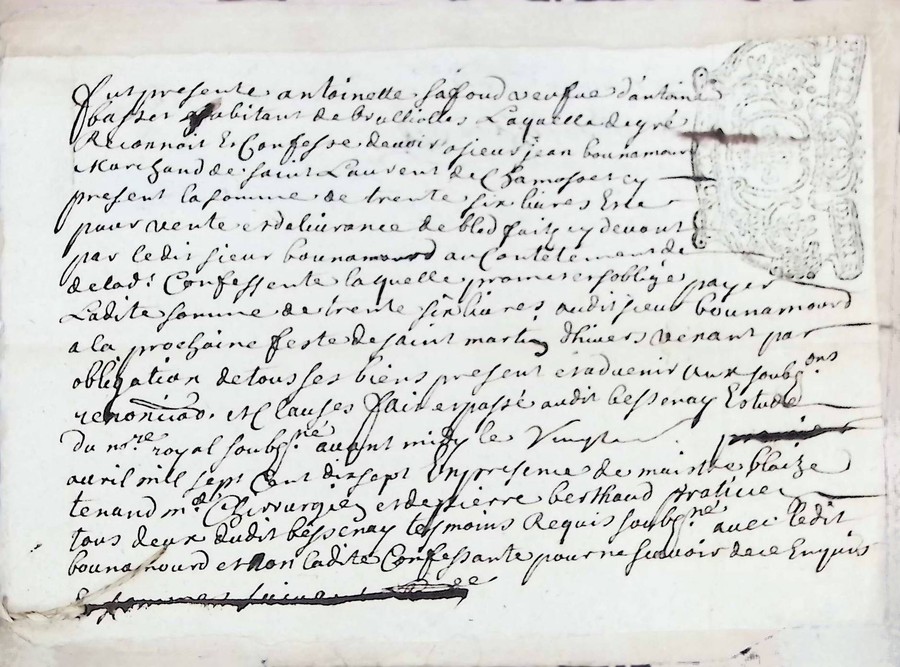 fut presente antoinette safoud veufue d'antoine
basset habitant de brullioles Laquelle de gré
Reconnoit et Confesse devoir a sieur jean bounamourd
Marchand de saint Laurent de Chamosset cy
present la somme de trente six livres Et ce
pour vente et delivrance de bled fait cy devant
par ledit sieur bounamourd au Contêtement de
de lad.t Confessente laquelle promet et soblige payer
Ladite somme de trente six livres audit sieur bounamourd
a la prochaine feste de saint martin dhivers venant par
obligation de tous ses biens present et advenir aux soub.ons
renonciaõ. et Clauses fait et passé audit bessenay Estude
du no.re royal soubs.né avant midy le Vingt
avril mil sept Cent dix sept En presence de maistre blaize
tenand m.e Chirurgien et de pierre berthaud praticien
tous deux dudit bessenay tesmoins Requis soubs.né avec ledit
bounamourd et non ladite Confessante pour ne scavoir de ce Enquise